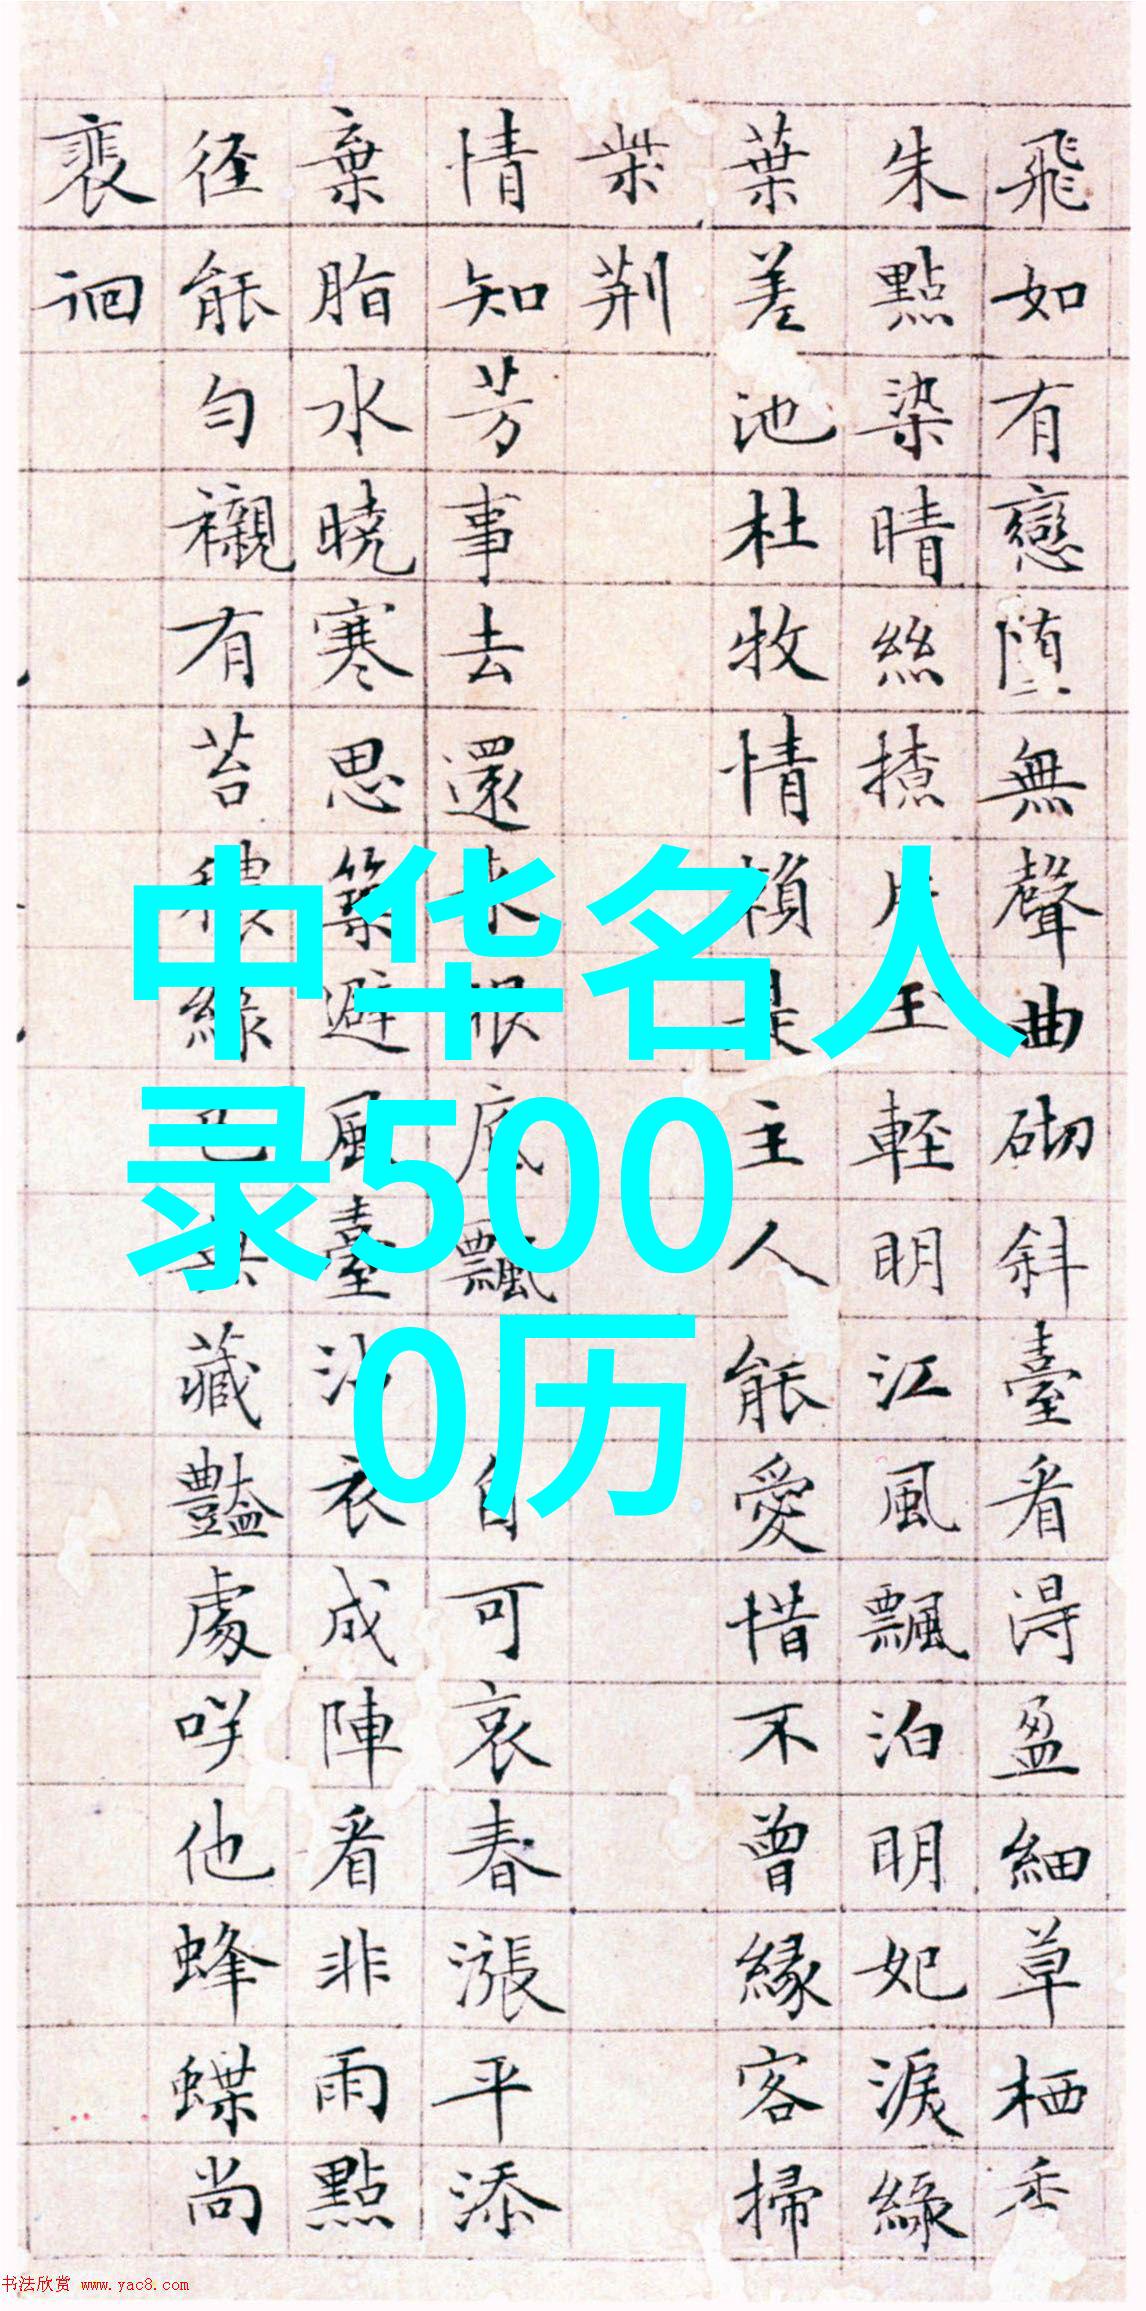 飛如有戀堕無聲曲砌斜臺看得盈細草栖香
朱點染晴絲揸片玉輕明江風飄泊明妃淚緑
葉差池杜牧情賴是主人能愛惜不曾緣客掃
柴荆
情知芳事去還來根底飄自可哀春漲平添
棄脂水曉寒思築避風臺沙衣成陣看非雨點
径能勻襯有苔穠綠藏豔處咲他蜂蝶尚
裴徊
中华名人
录500
0历
书法欣赏 www.yac8.com